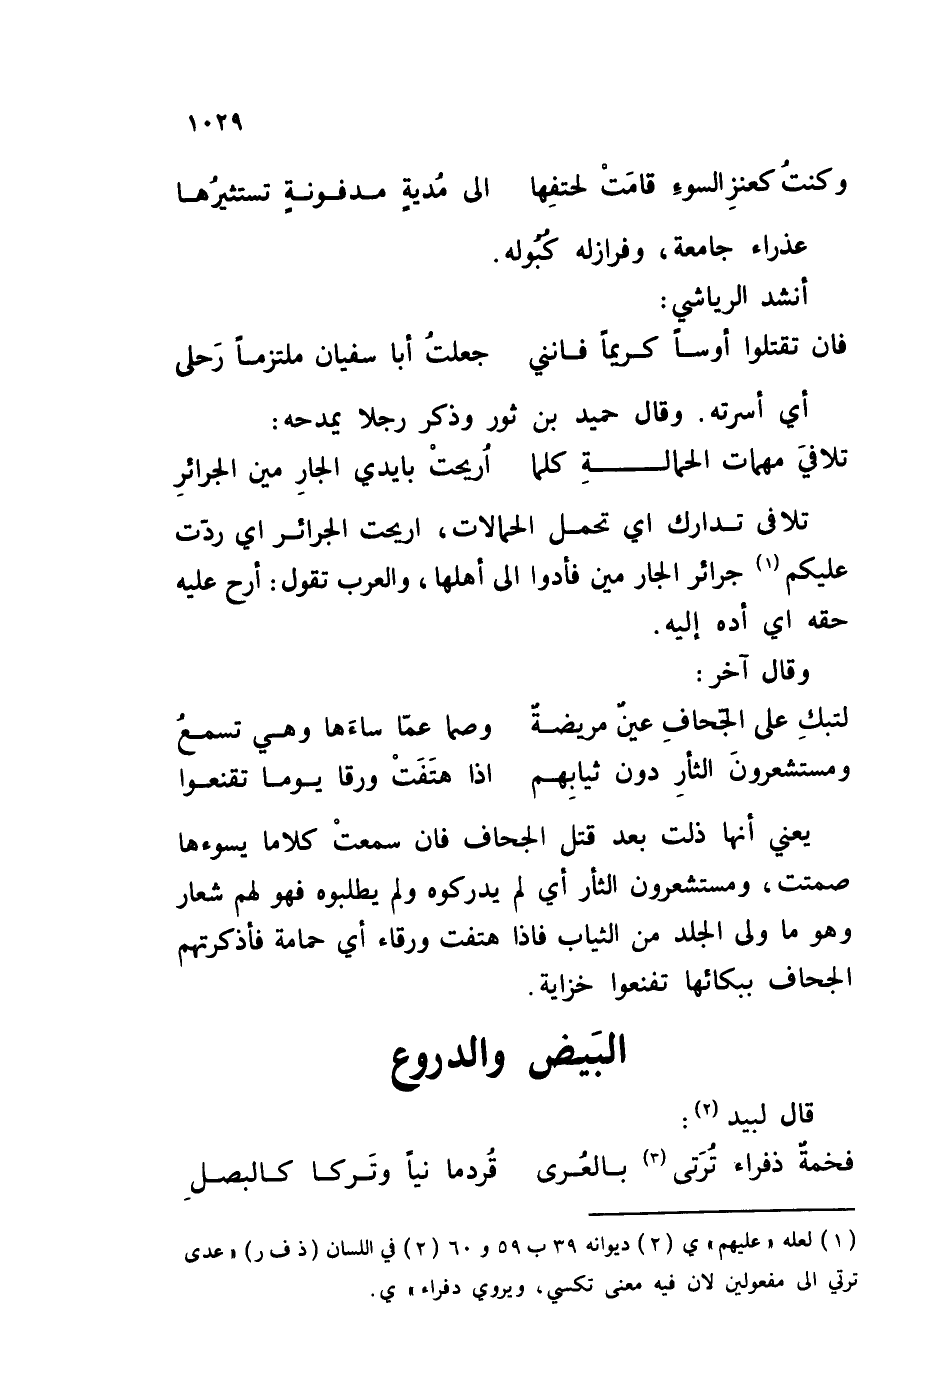 ١٠٢٩
وكنتُ كعنزِ السوءِ قامَتْ لحتفِها الى مُديةٍ مـدفـونـةٍ تستثيرُهـا
عذراء جامعة، وفرازله كُبُوله.
أنشد الرياشي:
فان تقتلوا أوسـاً كـريماً فـانني جعلتُ أبا سفيان ملتزمـاً رَحلى
أي أسرته. وقال حميد بن ثور وذكر رجلا يمدحه:
تلافيَ مهمات الحمالـــــــةِ كلما اُريحتْ بايدي الجارِ مين الجرائرِ
تلافى تـدارك اي تحمـل الحمالات، اريحت الجرائـر اي ردّت
عليكم (١) جرائر الجار مين فأدوا الى أهلها، والعرب تقول: أرح عليه
حقه اي أده إليه.
وقال آخر:
لتبكِ على الجّحافِ عينٌ مريضـةٌ وصما عمّا ساءَها وهـي تسمـعُ
ومستشعرونَ الثأرِ دون ثيابِهـم اذا هتَفَتْ ورقا يـومـا تقنعـوا
يعني أنها ذلت بعد قتل الجحاف فان سمعتْ كلاما يسوءها
صمتت، ومستشعرون الثأر أي لم يدركوه ولم يطلبوه فهو لهم شعار
وهو ما ولى الجلد من الثياب فاذا هتفت ورقاء أي حمامة فأذكرتهم
الجحاف ببكائها تفنعوا خزاية.
البَيض والدروع
قال لبيد (٢):
فخمةٌ ذفراء تُرَتى (٣) بـالعُرى قُردما نياً وتَـركـا كـالبصلِ
(١) لعله «عليهم» ي (٢) ديوانه ٣٩ ب ٥٩ و ٦٠ (٢) في اللسان (ذ ف ر) «عدى
ترتي الى مفعولين لان فيه معنى تكسي، ويروي دفراء» ي.